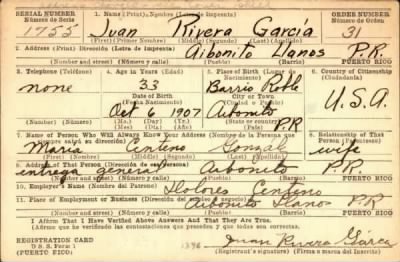 SERIAL NUMBER 1. Name (Print) / Nombre (Letra de Imprenta) ORDER NUMBER
Número de Serie Núm. de Orden
1755 Juan Rivera García 31
(First) (Primer Nombre) (Middle) (Segundo) (Last) (Apellido)
2. Address (Print) / Dirección (Letra de Imprenta) Aibonito Llanos P.R.
(Number and street) (Número y calle) (Town) (Pueblo) PUERTO RICO
3. Telephone (Teléfono) 4. Age in Years (Edad) 5. Place of Birth (Lugar de Nacimiento) 6. Country of Citizenship (Ciudadanía)
none 33 Barrio Roble U.S.A.
Date of Birth City or Town
Oct 6 1907 Aibonito
P.R
7. Name of Person Who Will Always Know Your Address (Nombre de la Persona que siempre sabrá su dirección) 8. Relationship of That Person (Parentesco)
María Centeno Gonzalz wife
(First) (Primer Nombre) (Middle) (Segundo) (Last) (Apellido)
9. Address of That Person (Dirección de esa Persona)
entrega general Aibonito P.R.
(Number and street) (Número y calle) (Town) (Pueblo) PUERTO RICO
10. Employer's Name (Nombre del Patrono)
Dolores Centeno
11. Place of Employment or Business (Dirección del empleo) Aibonito Llanos P.R
(Number and street) (Número y calle) (Town) (Pueblo) PUERTO RICO
I Affirm That I Have Verified Above Answers And That They Are True.
(Afirmo que he verificado las contestaciones que preceden y que son ciertas.)
REGISTRATION CARD
D S S. Form 1
(PUERTO RICO) Juan Rivera García
(Registrant's signature) (Firma del Registrado)